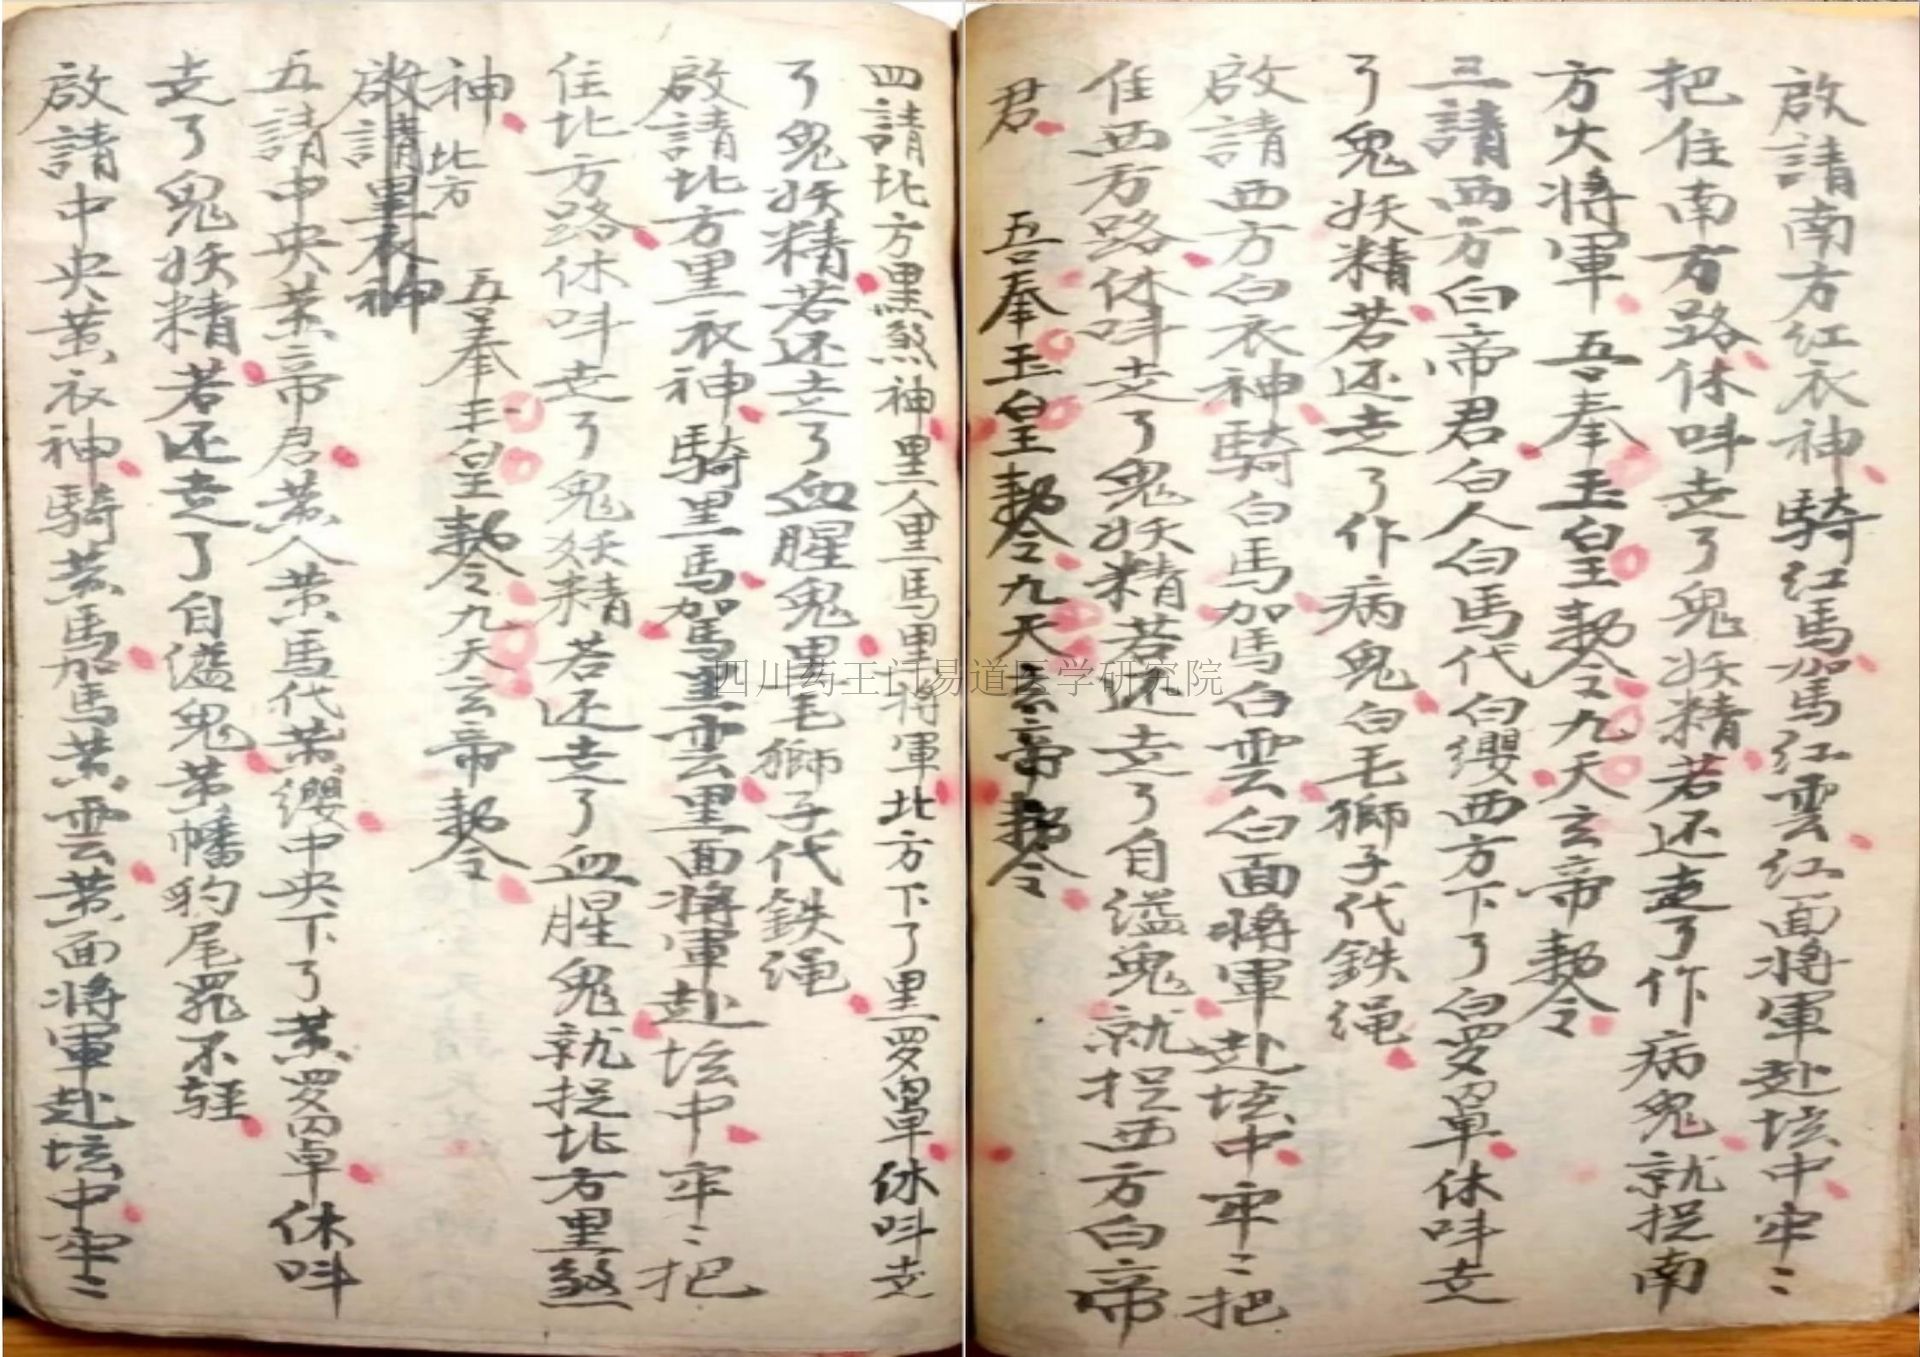 啟請南方红衣神騎红馬駕红雲红面將軍赴坛中牢〻
把住南方路休叫走了鬼妖精若还走了作病鬼就捉南
方火將軍 吾奉玉皇勅令九天玄帝勅令
三請西方白帝君白人白馬代白缨西方下了白罗卓休叫走
了鬼妖精若还走了作病鬼白毛獅子代鉄绳
啟請西方白衣神騎白馬駕白雲白面將軍赴坛中牢〻把
住西方路休叫走了鬼妖精若还走了自缢鬼就捉西方白帝
君 吾奉玉皇勅令九天玄帝勅令
四請北方黒煞神黒人黒馬黒將軍北方下了黒罗卓休叫走
了鬼妖精若还走了血腥鬼黒毛獅子代鉄绳
啟請北方黒衣神騎黒馬駕黒雲黒面將軍赴坛中牢〻把
住北方路休叫走了鬼妖精若还走了血腥鬼就捉北方黒煞
神 北方 吾奉玉皇勅令九天玄帝勅令
啟請黒衣神
五請中央黄帝君黄人黄馬代黄缨中央下了黄罗卓休叫
走了鬼妖精若还走了自缢鬼黄幡豹尾罪不轻
啟請中央黄衣神騎黄馬駕黄雲黄面將軍赴坛中牢〻
四川药王门易道医学研究院